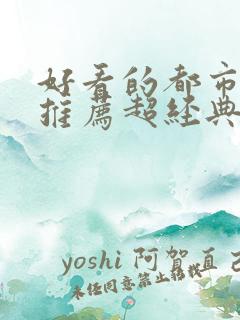 好看的都市
推薦超經典
yoshi 阿賀直己
未任同意禁止轉載